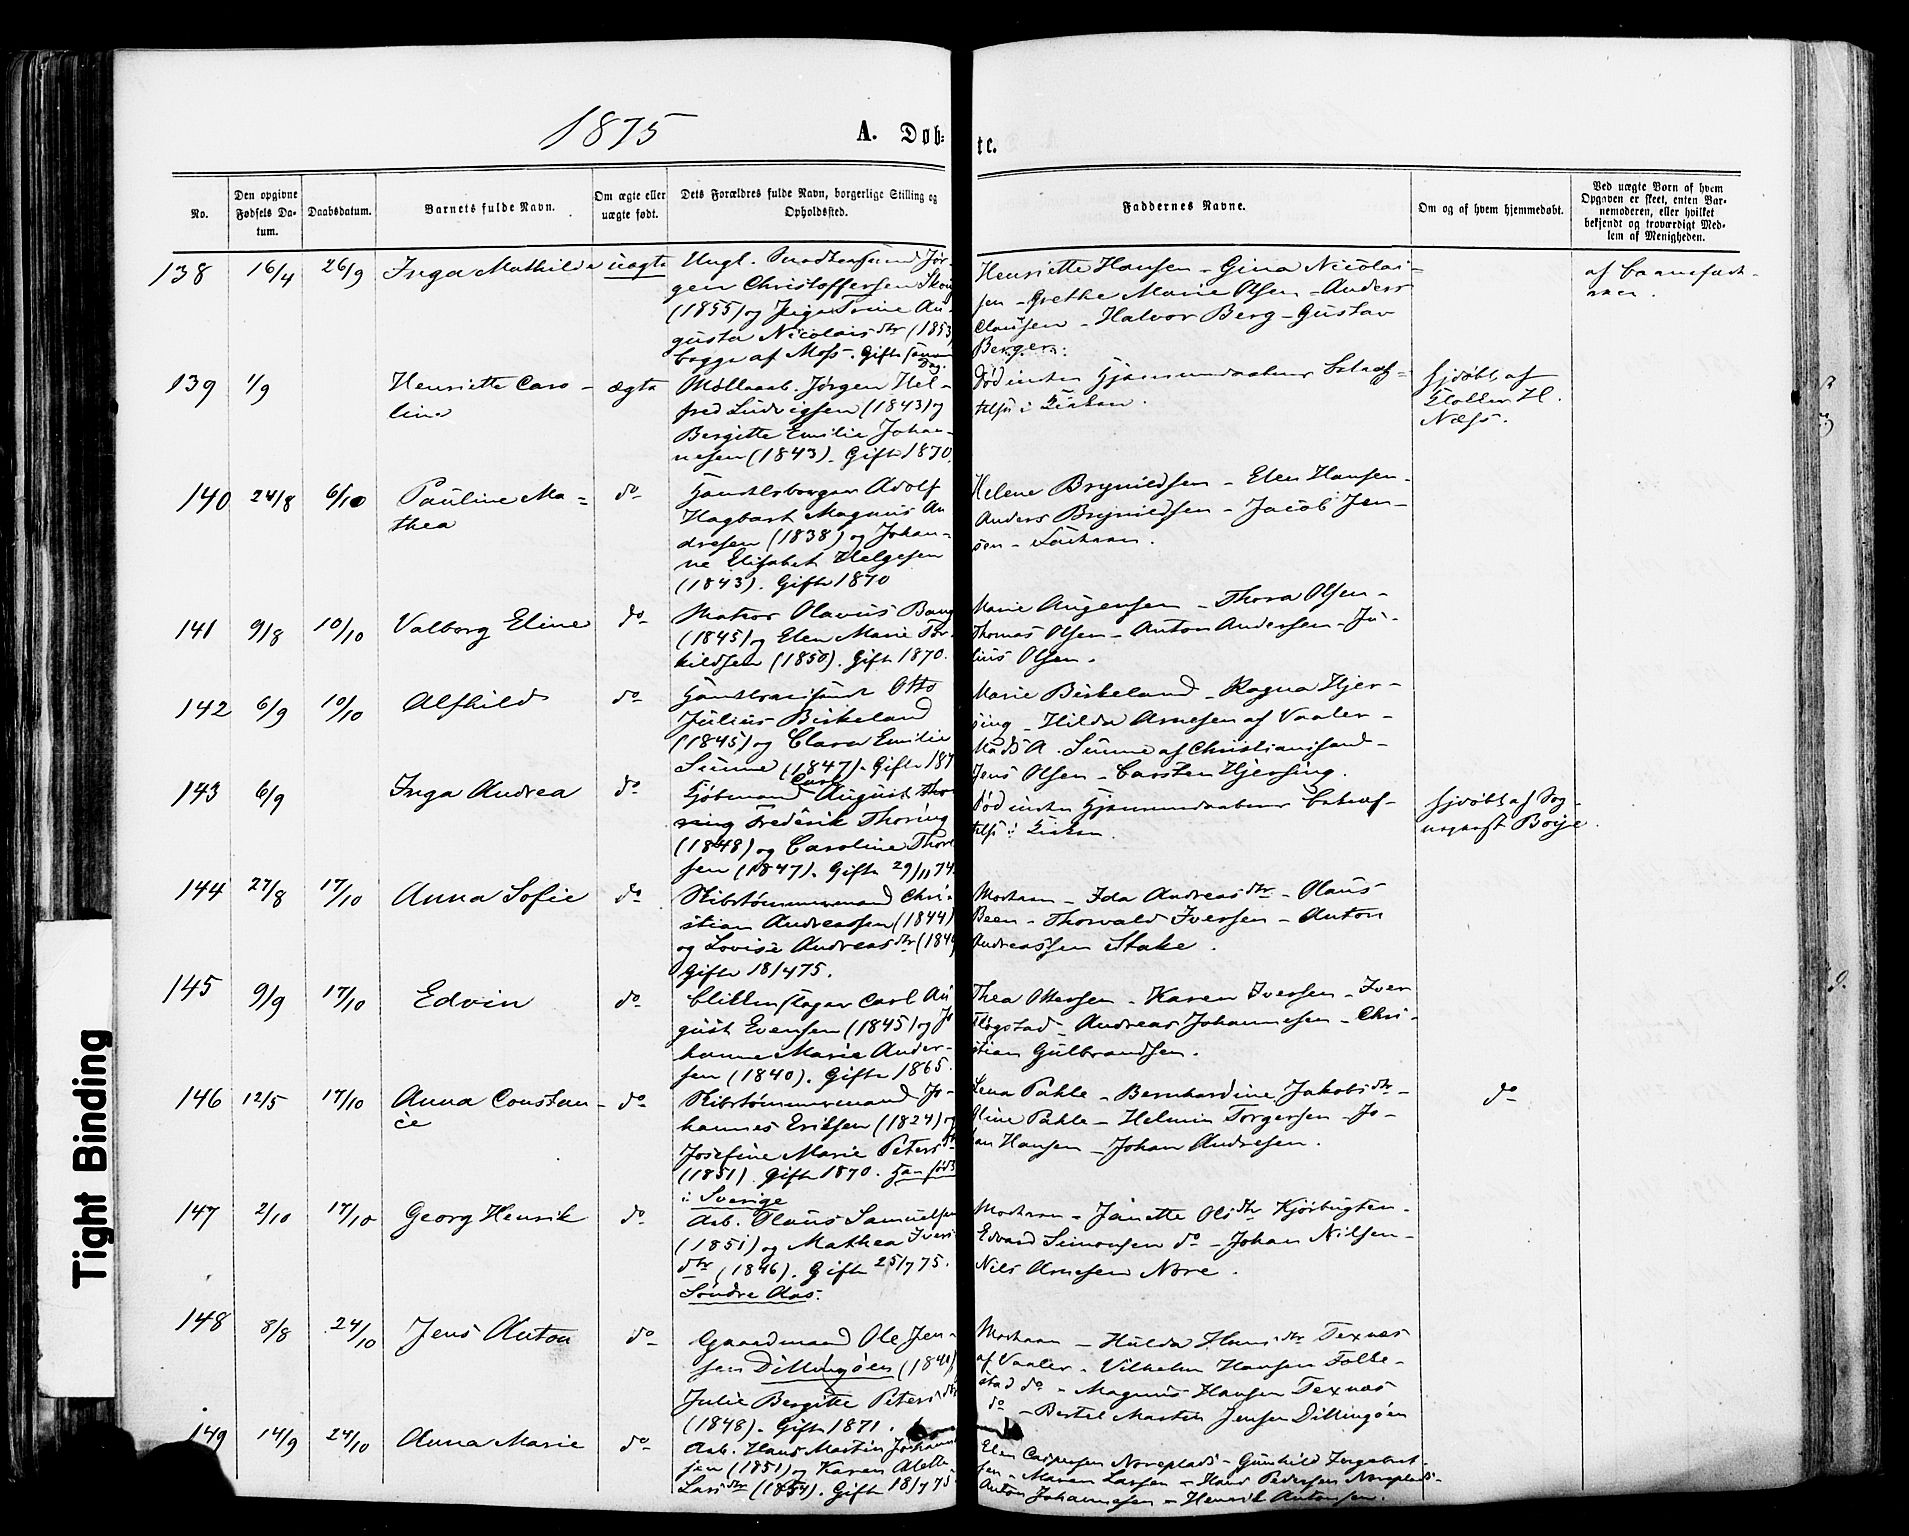 1875
A. Døb-
te.
No.
Den opgivne
Fødsels Da-
tum.
Daabsdatum.
Barnets fulde Navn.
Om ægte eller
uægte født.
Dets Forældres fulde Navn, borgerlige Stilling og
Opholdssted.
Faddernes Navne.
Om og af hvem hjemmedøbt.
Ved uægte Børn af hvem
Opgaven er skeet, enten Bar-
nemoderen, eller hvilket
bekjendt og troværdigt Med-
lem af Menigheden.
138 16/4 26/9 Inga Mathilde uægte
Ungk. Jør-
gen Christoffersen
(1855) og Inga Trine Au-
gusta Nicolaisdtr (1853)
begge af Moss. Gifte samme
Dag.
Henriette Hansen - Gina Nicolai-
sen - Grethe Marie Olsen - Anders
Clausen - Halvor Berg - Gustav
Berger.
139 1/9 Henriette Caro-
line
ægte
Møllearb. Jørgen Hel-
fred Ludvigsen (1843) og
Bergitte Emilie Johan-
nesen (1843). Gifte 1870.
Død inden Hjemmedaabens Stadfæ-
telse i Kirken.
hjdøbt af
Klokker H.
Næss.
140 24/8 6/10 Pauline Ma-
thea
do
Handelsborger Adolf
Hagbart Magnus An
dresen (1838) og Johan-
ne Elisabet Helgesen
(1843). Gifte 1870
Helene Brynildsen - Elen Hansen -
Anders Brynildsen - Jacob Jen-
sen - Faderen.
141 9/8 10/10 Valborg Eline do
Matros Olavus Bang
(1845) og Elen Marie Tor-
kildsen (1850). Gifte 1870.
Marie Augensen - Thora Olsen -
Thomas Olsen - Anton Andersen - Ju-
lius Olsen.
142 6/9 10/10 Alfhild do
Otto
Julius Birkeland
(1845) og Clara Emilie
Sunne (1847). Gifte 187
Marie Birkeland - Ragna Hjer-
sing - Hilda Arnesen af Vaaler -
Mads A. Sunne af Christianssand -
Jens Olsen - Carsten Hjersing.
143 6/9 Inga Andrea do
Kjøbmand Carl August Tho
ring Frederik Thoring
(1848) og Caroline Thor
sen (1847). Gifte 29/11 74.
Død inden Hjemmedaabens
telse i Kirken.
hjdøbt af Sog-
neprest Boye.
144 27/8 17/10 Anna Sofie do
Skibstømmermand Chri-
stian Andreassen (1844)
og Lovise Andreasdtr
Gifte 18/4 75.
Moderen - Ida Andreasdtr - Olaus
Been - Thorvald Iversen - Anton
Andreassen Stake.
145 9/9 17/10 Edvin do
Blikkenslager Carl Au
gust Evensen (1845) og Jo
hanne Marie Ander-
sen (1840). Gifte 1865.
Thea Ottersen - Karen Iversen - Iver
Fløgstad - Andreas Johannesen - Chri-
stian Gulbrandsen.
146 12/5 17/10 Anna Constan-
ce
do
Skibstømmermand Jo-
hannes Eriksen (1824) og
Josefine Marie Peters
(1851). Gifte 1870. Han født
i Sverige
Lena Pahle - Bernhardine Jakobsdtr -
Oline Pahle - Helmin Torgersen - Jo-
han Hansen - Johan Andresen.
do
147 2/10 17/10 Georg Henrik do
Arb. Olaus Samuelsen
(1851) og Mathea Ivers-
dtr (1846). Gifte 25/7 75.
Søndre Aas.
Moderen - Janette Olsdtr Kjørbugten -
Edvard Simonsen do - Johan Nilsen -
Nils Arnesen Nore.
148 8/8 24/10 Jens Anton do
Gaardmand Ole Jen-
sen Dillingøen (1840)
Julie Bergitte Petersdtr
(1848). Gifte 1871.
Moderen - Hulda Hansdtr Texnes
af Vaaler - Vilhelm Hansen Folke-
stad do - Magnus Hansen Texnæs
do - Bertel Martin Jensen Dillingøen
149 14/9 24/10 Anna Marie do
Arb. Hans Martin Johanne
sen (1851) og Karen Alette
Larsdtr (1854). Gifte 18/7 75
Elen Caspersen Noreplads - Gunhild Ingebret-
sen - Maren Larsen - Hans Pedersen Noreplads -
Anton Johannesen - Henrik Antonsen.
af Barnefade-
ren.
Tight Binding